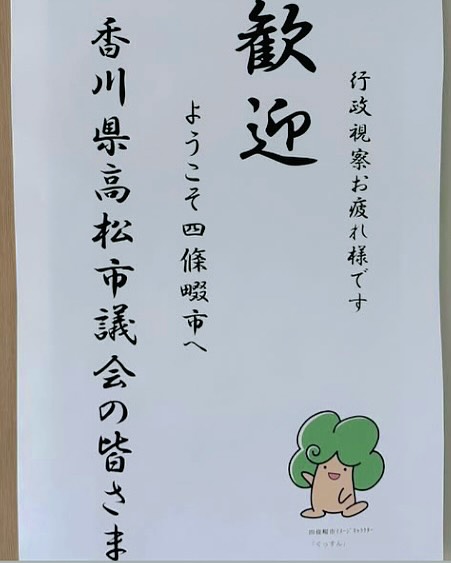 行政視察お疲れ様です
歓迎
ようこそ四條畷市へ
香川県高松市議会の皆さま
四條畷市ｲﾒｰｼﾞｷｬﾗｸﾀｰ
「くっすん」